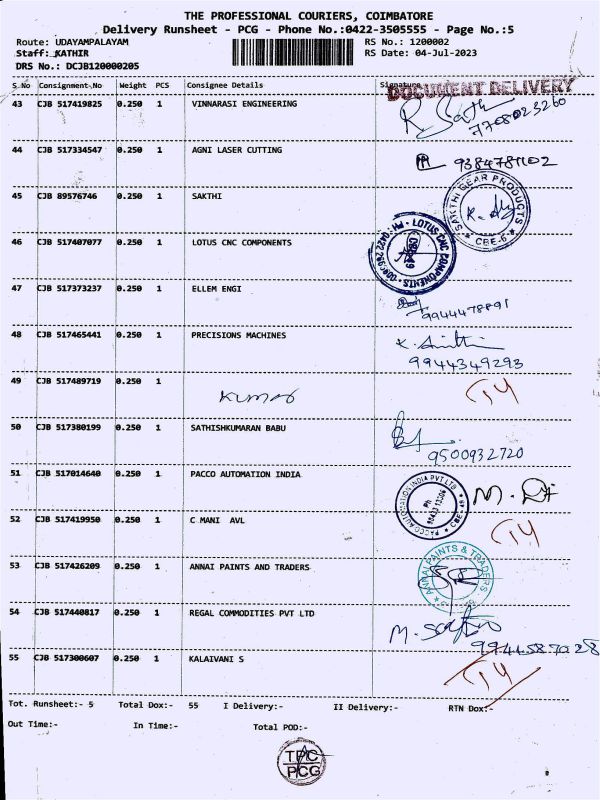 THE PROFESSIONAL COURIERS, COIMBATORE
Delivery Runsheet - PCG - Phone No.:0422-3505555 - Page No.:5
Route: UDAYAMPALAYAM RS No.: 1200002
Staff: KATHIR RS Date: 04-Jul-2023
DRS No.: DCJB120000205
S No Consignment No Weight PCS Consignee Details Signature
DOCUMENT DELIVERY
43 CJB 517419825 0.250 1 VINNARASI ENGINEERING
7708023260
44 CJB 517334547 0.250 1 AGNI LASER CUTTING
9384781102
45 CJB 89576746 0.250 1 SAKTHI
SAKTHI GEAR PRODUCTS
CBE-6
46 CJB 517407077 0.250 1 LOTUS CNC COMPONENTS
LOTUS CNC COMPONENTS
47 CJB 517373237 0.250 1 ELLEM ENGI
9944478891
48 CJB 517465441 0.250 1 PRECISIONS MACHINES
9944349293
49 CJB 517489719 0.250 1
Kumar
50 CJB 517380199 0.250 1 SATHISHKUMARAN BABU
9500932720
51 CJB 517014640 0.250 1 PACCO AUTOMATION INDIA
PACCO AUTOMATION INDIA PVT LTD
52 CJB 517419950 0.250 1 C MANI AVL
53 CJB 517426209 0.250 1 ANNAI PAINTS AND TRADERS
ANNAI PAINTS & TRADERS
54 CJB 517440817 0.250 1 REGAL COMMODITIES PVT LTD
9944587028
55 CJB 517300607 0.250 1 KALAIVANI S
Tot. Runsheet:- 5 Total Dox:- 55 I Delivery:- II Delivery:- RTN Dox:-
Out Time:- In Time:- Total POD:-
TPC
PCG